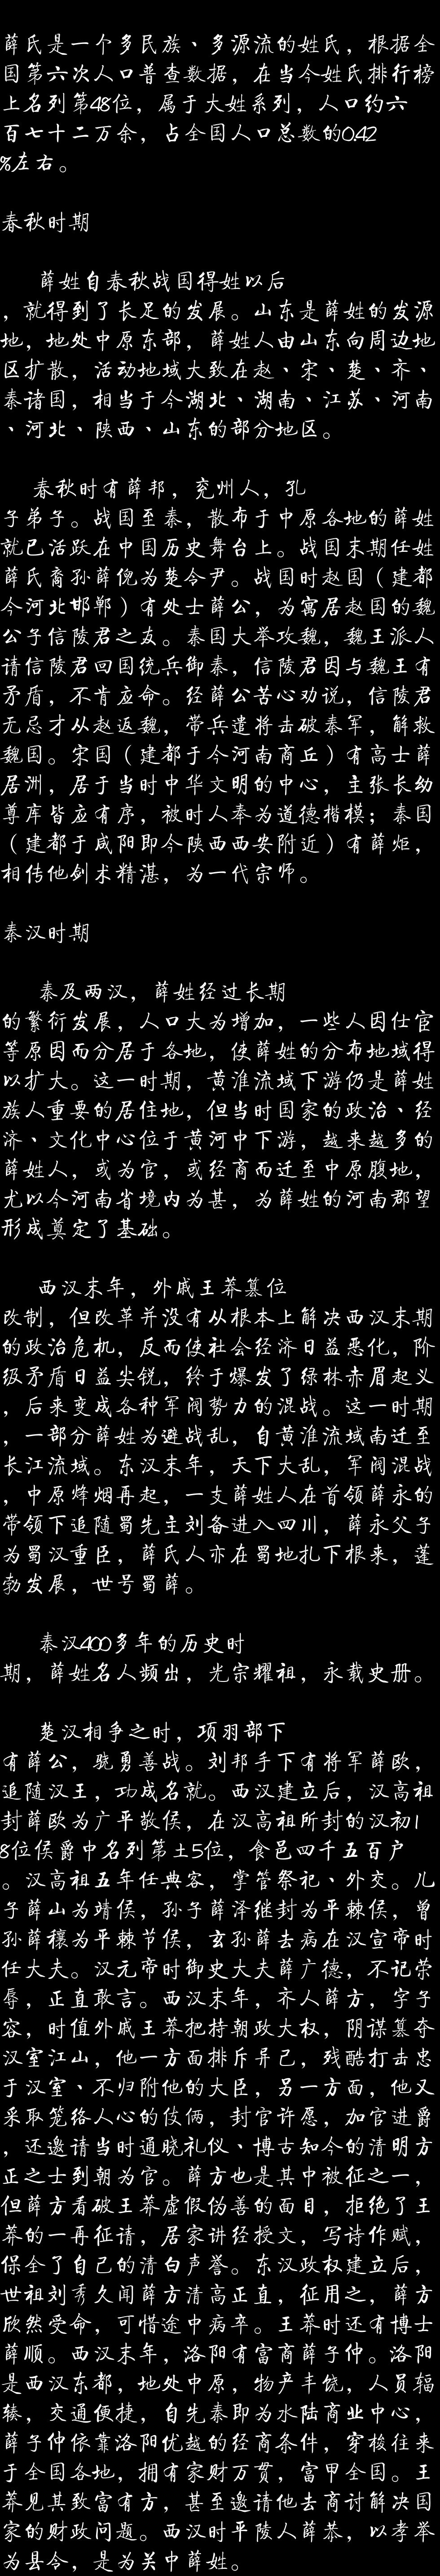 薛氏是一个多民族、多源流的姓氏，根据全
国第六次人口普查数据，在当今姓氏排行榜
上名列第48位，属于大姓系列，人口约六
百七十二万余，占全国人口总数的0.42
%左右。
春秋时期
薛姓自春秋战国得姓以后
，就得到了长足的发展。山东是薛姓的发源
地，地处中原东部，薛姓人由山东向周边地
区扩散，活动地域大致在赵、宋、楚、齐、
秦诸国，相当于今湖北、湖南、江苏、河南
、河北、陕西、山东的部分地区。
春秋时有薛邦，兖州人，孔
子弟子。战国至秦，散布于中原各地的薛姓
就已活跃在中国历史舞台上。战国末期任姓
薛氏裔孙薛倪为楚令尹。战国时赵国（建都
今河北邯郸）有处士薛公，为寓居赵国的魏
公子信陵君之友。秦国大举攻魏，魏王派人
请信陵君回国统兵御秦，信陵君因与魏王有
矛盾，不肯应命。经薛公苦心劝说，信陵君
无忌才从赵返魏，带兵遣将击破秦军，解救
魏国。宋国（建都于今河南商丘）有高士薛
居洲，居于当时中华文明的中心，主张长幼
尊库皆应有序，被时人奉为道德楷模；秦国
（建都于咸阳即今陕西西安附近）有薛炬，
相传他剑术精湛，为一代宗师。
秦汉时期
秦及两汉，薛姓经过长期
的繁衍发展，人口大为增加，一些人因仕宦
等原因而分居于各地，使薛姓的分布地域得
以扩大。这一时期，黄淮流域下游仍是薛姓
族人重要的居住地，但当时国家的政治、经
济、文化中心位于黄河中下游，越来越多的
薛姓人，或为官，或经商而迁至中原腹地，
尤以今河南省境内为甚，为薛姓的河南郡望
形成奠定了基础。
西汉末年，外戚王莽篡位
改制，但改革并没有从根本上解决西汉末期
的政治危机，反而使社会经济日益恶化，阶
级矛盾日益尖锐，终于爆发了绿林赤眉起义
，后来变成各种军阀势力的混战。这一时期
，一部分薛姓为避战乱，自黄淮流域南迁至
长江流域。东汉末年，天下大乱，军阀混战
，中原烽烟再起，一支薛姓人在首领薛永的
带领下追随蜀先主刘备进入四川，薛永父子
为蜀汉重臣，薛氏人亦在蜀地扎下根来，蓬
勃发展，世号蜀薛。
秦汉400多年的历史时
期，薛姓名人频出，光宗耀祖，永载史册。
楚汉相争之时，项羽部下
有薛公，骁勇善战。刘邦手下有将军薛欧，
追随汉王，功成名就。西汉建立后，汉高祖
封薛欧为广平敬侯，在汉高祖所封的汉初1
8位侯爵中名列第土5位，食邑四千五百户
。汉高祖五年任典客，掌管祭祀、外交。儿
子薛山为靖侯，孙子薛泽继封为平棘侯，曾
孙薛穰为平棘节侯，玄孙薛去病在汉宣帝时
任大夫。汉元帝时御史大夫薛广德，不记荣
辱，正直敢言。西汉末年，齐人薛方，字子
容，时值外戚王莽把持朝政大权，阴谋篡夺
汉室江山，他一方面排斥异己，残酷打击忠
于汉室、不归附他的大臣，另一方面，他又
采取笼络人心的伎俩，封官许愿，加官进爵
，还邀请当时通晓礼仪、博古知今的清明方
正之士到朝为官。薛方也是其中被征之一，
但薛方看破王莽虚假伪善的面目，拒绝了王
莽的一再征请，居家讲经授文，写诗作赋，
保全了自己的清白声誉。东汉政权建立后，
世祖刘秀久闻薛方清高正直，征用之，薛方
欣然受命，可惜途中病卒。王莽时还有博士
薛顺。西汉末年，洛阳有富商薛子仲。洛阳
是西汉东都，地处中原，物产丰饶，人员辐
辏，交通便捷，自先秦即为水陆商业中心，
薛子仲依靠洛阳优越的经商条件，穿梭往来
于全国各地，拥有家财万贯，富甲全国。王
莽见其致富有方，甚至邀请他去商讨解决国
家的财政问题。西汉时平陵人薛恭，以孝举
为县令，是为关中薛姓。